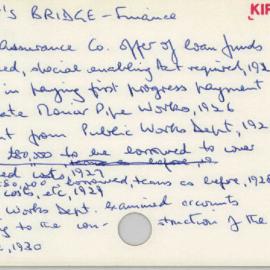 'S BRIDGE - Finance
KIP
Assurance Co. offer of loan funds
ed, special enabling Act required, 192
in paying first progress payment
ate Manor Pipe Works, 1926
t from Public Works Dept, 192
£80,000 to be borrowed to cover
ed costs, 1927
£80,000 borrowed, terms as before, 1928
costs, etc, 1929
Works Dept. examined accounts
g to the con- struction of the
, 1930